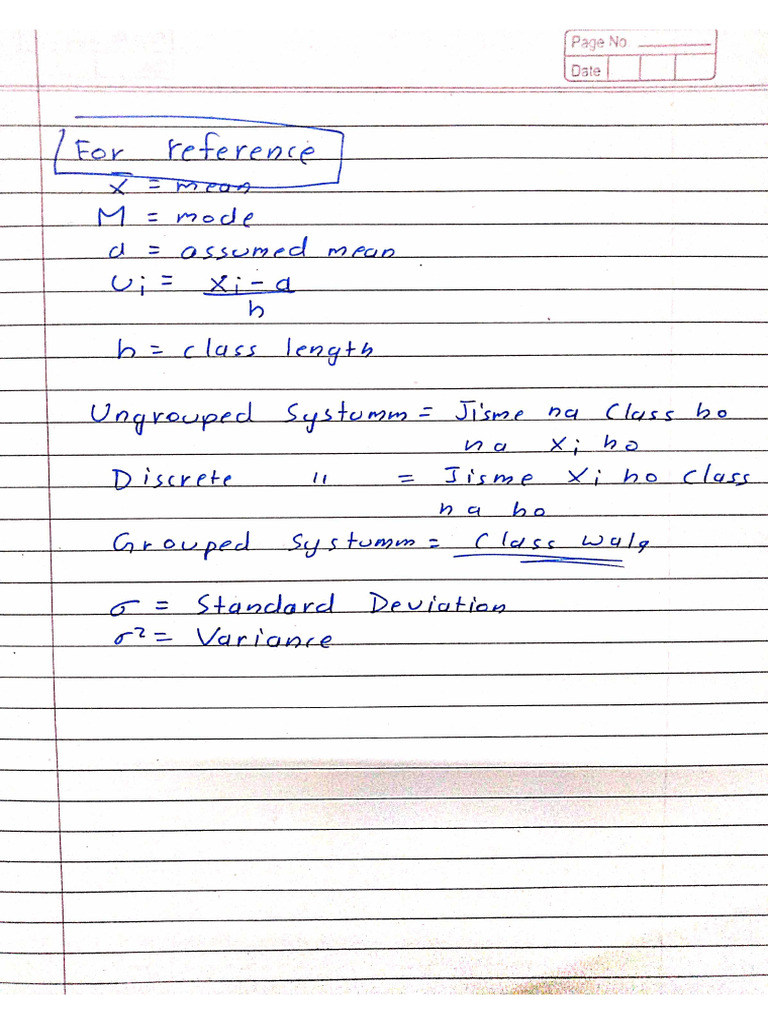 Page No.
Date
For reference
x̄ = mean
M = mode
a = assumed mean
ui = xi - a
h
h = class length
Ungrouped Systumm = Jisme na Class ho
na xi ho
Discrete " = Jisme xi ho class
na ho
Grouped Systumm = Class wala
σ = Standard Deviation
σ² = Variance